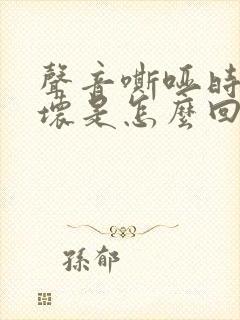 聲音嘶啞時
壞是怎麼回
孫郁